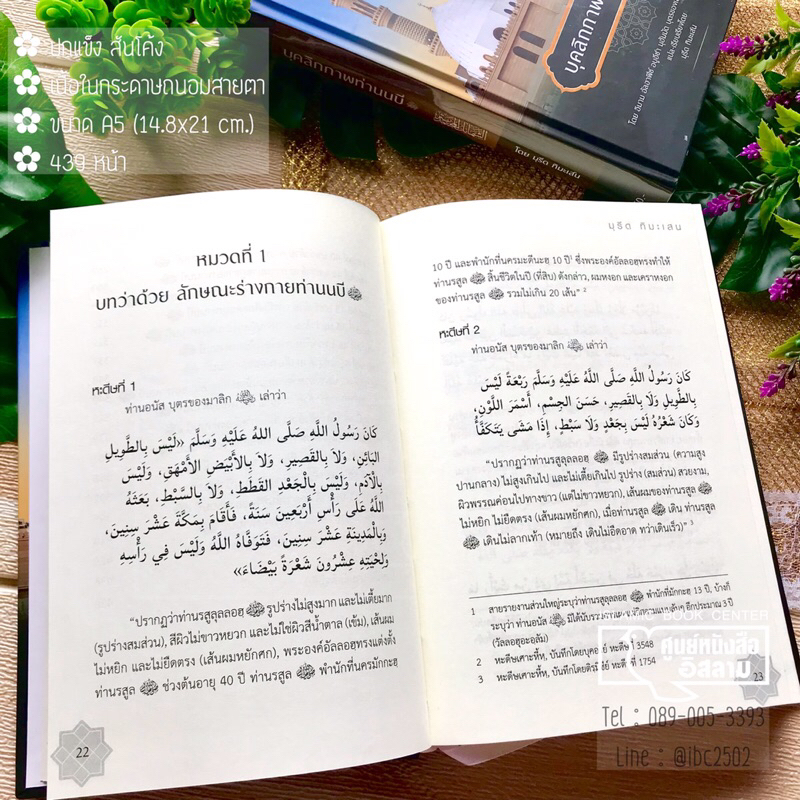 ปกแข็ง สันโค้ง
เนื้อในกระดาษถนอมสายตา
ขนาด A5 (14.8x21 cm.)
439 หน้า
บุคลิกภาพ
บุคลิกภาพท่านนบี ﷺ
โดย มุรีด ทิมะเสน
หมวดที่ 1
บทว่าด้วย ลักษณะร่างกายท่านนบี ﷺ
หะดีษที่ 1
ท่านอนัส บุตรของมาลิก เล่าว่า
كَانَ رَسُولُ اللَّهِ صَلَّى اللهُ عَلَيْهِ وَسَلَّمَ «لَيْسَ بِالطَّوِيلِ
البَائِنِ، وَلَا بِالقَصِيرِ، وَلَا بِالأَبْيَضِ الأَمْهَقِ، وَلَيْسَ
بِالْآدَمِ، وَلَيْسَ بِالْجَعْدِ القَطَطِ، وَلَا بِالسَّبْطِ، بَعَثَهُ
اللَّهُ عَلَى رَأْسِ أَرْبَعِينَ سَنَةً، فَأَقَامَ بِمَكَّةَ عَشْرَ سِنِينَ،
وَبِالْمَدِينَةِ عَشْرَ سِنِينَ، فَتَوَفَّاهُ اللَّهُ وَلَيْسَ فِي رَأْسِهِ
وَلِحْيَتِهِ عِشْرُونَ شَعْرَةً بَيْضَاءَ»
“ปรากฏว่าท่านรสูลุลลอฮฺ ﷺ รูปร่างไม่สูงมาก และไม่เตี้ยมาก
(รูปร่างสมส่วน), สีผิวไม่ขาวหยวก และไม่ใช่ผิวสีน้ำตาล (เข้ม), เส้นผม
ไม่หยิก และไม่ยืดตรง (เส้นผมหยักศก), พระองค์อัลลอฮฺทรงแต่งตั้ง
ท่านรสูล ﷺ ช่วงต้นอายุ 40 ปี ท่านรสูล ﷺ พำนักที่นครมักกะฮฺ
22
มุรีด ทิมะเสน
10 ปี และพำนักที่นครมะดีนะฮฺ 10 ปี¹ ซึ่งพระองค์อัลลอฮฺทรงทำให้
ท่านรสูล ﷺ สิ้นชีวิตในปี (ที่สิบ) ดังกล่าว, ผมหงอก และเคราหงอก
ของท่านรสูล ﷺ รวมไม่เกิน 20 เส้น” ²
หะดีษที่ 2
ท่านอนัส บุตรของมาลิก เล่าว่า
كَانَ رَسُولُ اللَّهِ صَلَّى اللَّهُ عَلَيْهِ وَسَلَّمَ رَبْعَةً لَيْسَ
بِالطَّوِيلِ وَلَا بِالقَصِيرِ، حَسَنَ الجِسْمِ، أَسْمَرَ اللَّوْنِ،
وَكَانَ شَعْرُهُ لَيْسَ بِجَعْدٍ وَلَا سَبْطٍ، إِذَا مَشَى يَتَكَفَّأُ
“ปรากฏว่าท่านรสูลุลลอฮฺ ﷺ มีรูปร่างสมส่วน (ความสูง
ปานกลาง) ไม่สูงเกินไป และไม่เตี้ยเกินไป รูปร่าง (สมส่วน) สวยงาม,
ผิวพรรณค่อนไปทางขาว (แต่ไม่ขาวหยวก), เส้นผมของท่านรสูล ﷺ
ไม่หยิก ไม่ยืดตรง (เส้นผมหยักศก), เมื่อท่านรสูล ﷺ เดิน ท่านรสูล
ﷺ เดินไม่ลากเท้า (หมายถึง เดินไม่อืดอาด ทว่าเดินเร็ว)” ³
1 สายรายงานส่วนใหญ่ระบุว่าท่านรสูลุลลอฮฺ ﷺ พำนักที่มักกะฮฺ 13 ปี, บ้างก็
ระบุว่า ท่านนบี ﷺ มิได้นับรวม อีกประมาณ 3 ปี
(วัลลอฮุอะอฺลัม)
2 หะดีษเศาะหี้หฺ, บันทึกโดยบุคอรีย์ หะดีษที่ 3548
3 หะดีษเศาะหี้หฺ, บันทึกโดยติรมิซีย์ หะดีษที่ 1754
23
ISLAMIC BOOK CENTER
ศูนย์หนังสือ
อิสลาม
Tel : 089-005-3393
Line : @ibc2502